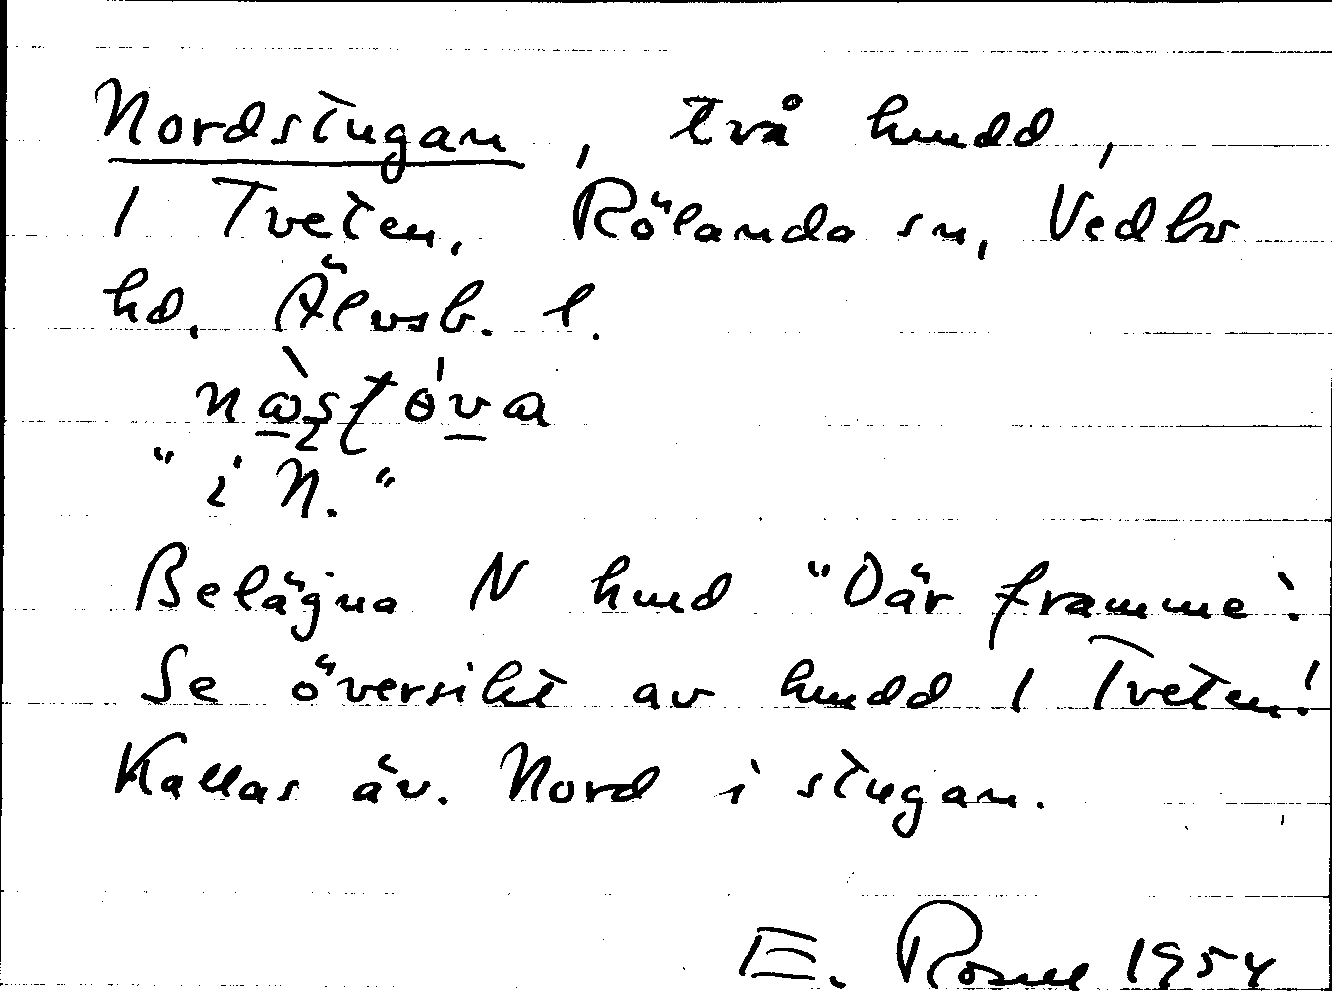 Nordstugan, två hmdd,
1 Tveten, Rölanda sn, Vedbo
hd, Älvsb. l.
"i N."
Belägna N hmd "Där framme".
Se översikt av hmdd 1 Tveten!
Kallas äv. Nord i stugan.
E. Rosell 1954